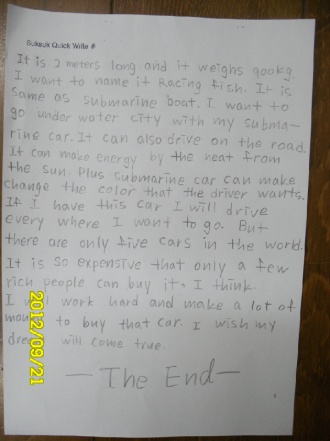 Suksuk Quick Write #
It is 2 meters long and it weighs 900kg
I want to name it Racing fish. It is
same as submarine boat. I want to
go under water city with my subma-
rine car. It can also drive on the road.
It can make energy by the heat from
the sun. Plus submarine car can make
change the color that the driver wants.
If I have this car I will drive
every where I want to go. But
there are only five cars in the world.
It is so expensive that only a few
rich people can buy it. I think.
I will work hard and make a lot of
to buy that car. I wish my
will come true.
—The End—
2012/09/21